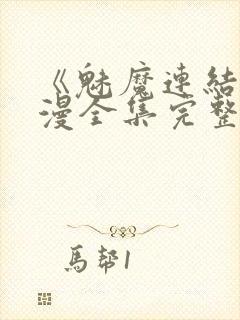 《魅魔連結
漫全集完整
馬幇1